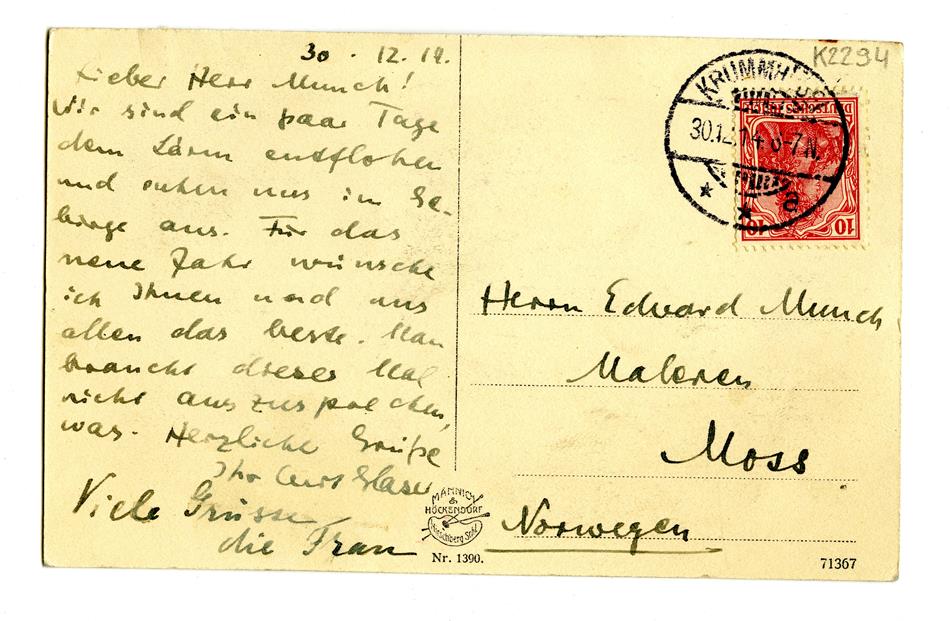 30. 12. 14.
Lieber Herr Munch!
Wir sind ein paar Tage
dem Lärm entflohen
und ruhen uns im Ge-
birge aus. Für das
neue Jahr wünsche
ich Ihnen und uns
allen das beste. Man
braucht dieses Mal
nicht auszusprechen,
was. Herzliche Grüße
Ihr Curt Glaser
Viele Grüsse
die Frau
K2294
KRUMMH
30.12.14 6-7 N.
* * a
DEUTSCHES REICH
10 10
Herrn Edvard Munch
Maleren
Moss
Norwegen
MANNICH
&
HÖCKENDORF
Hirschberg Schl.
Nr. 1390.
71367